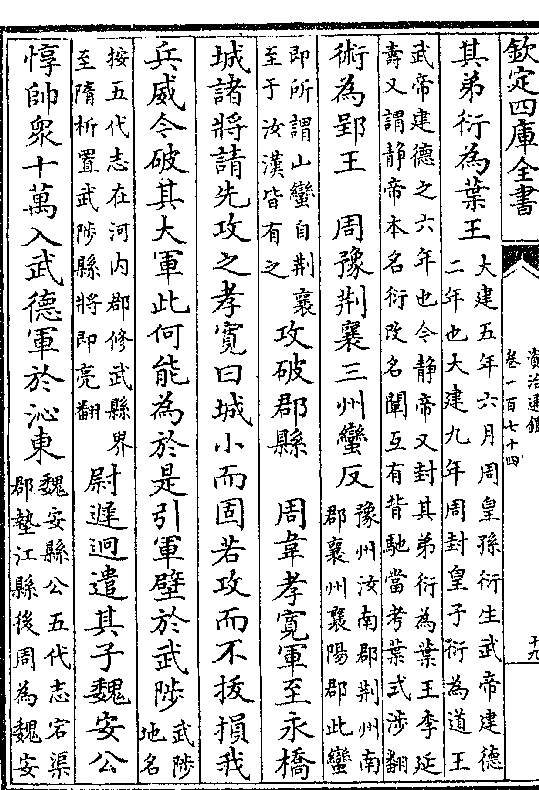 欽定四庫全書
資治通鑑
卷一百七十四
十九
其弟衍為葉王
大建五年六月周皇孫衍生武帝建德
二年也大建九年周封皇子衍為道王
武帝建德之六年也今静帝又封其弟衍為葉王李延
壽又謂静帝本名衍改名闡互有背馳當考葉式涉翻
術為郢王 周豫荆襄三州蠻反
豫州汝南郡荆州南
郡襄州襄陽郡此蠻
即所謂山蠻自荆襄
至于汝漢皆有之
攻破郡縣 周韋孝寛軍至永橋
城諸將請先攻之孝寛曰城小而固若攻而不拔損我
兵威今破其大軍此何能為於是引軍壁於武陟
武陟
地名
按五代志在河内郡修武縣界
至隋析置武陟縣將即亮翻
尉遲迥遣其子魏安公
惇帥衆十萬入武德軍於沁東
魏安縣公五代志宕渠
郡墊江縣後周為魏安